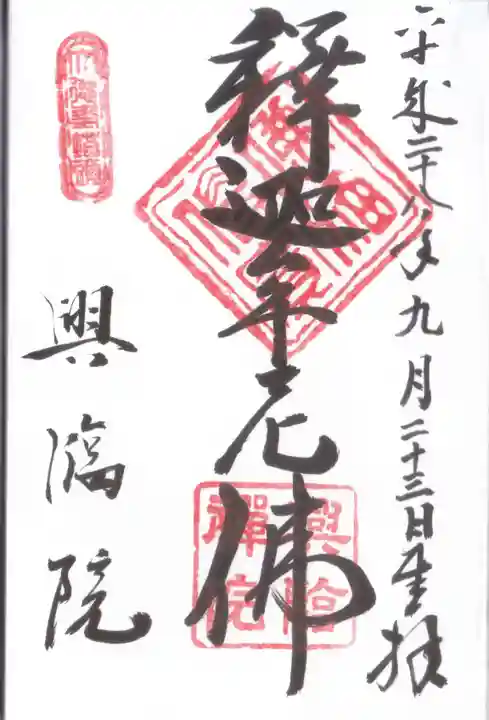 平成二十八年九月二十三日奉拝
釋迦牟尼佛
興臨
禪院
興臨院